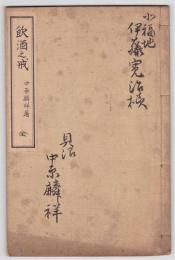 小福地
伊藤寛治様
具沼
中原麟祥
飲酒之戒
中原麟祥著
全